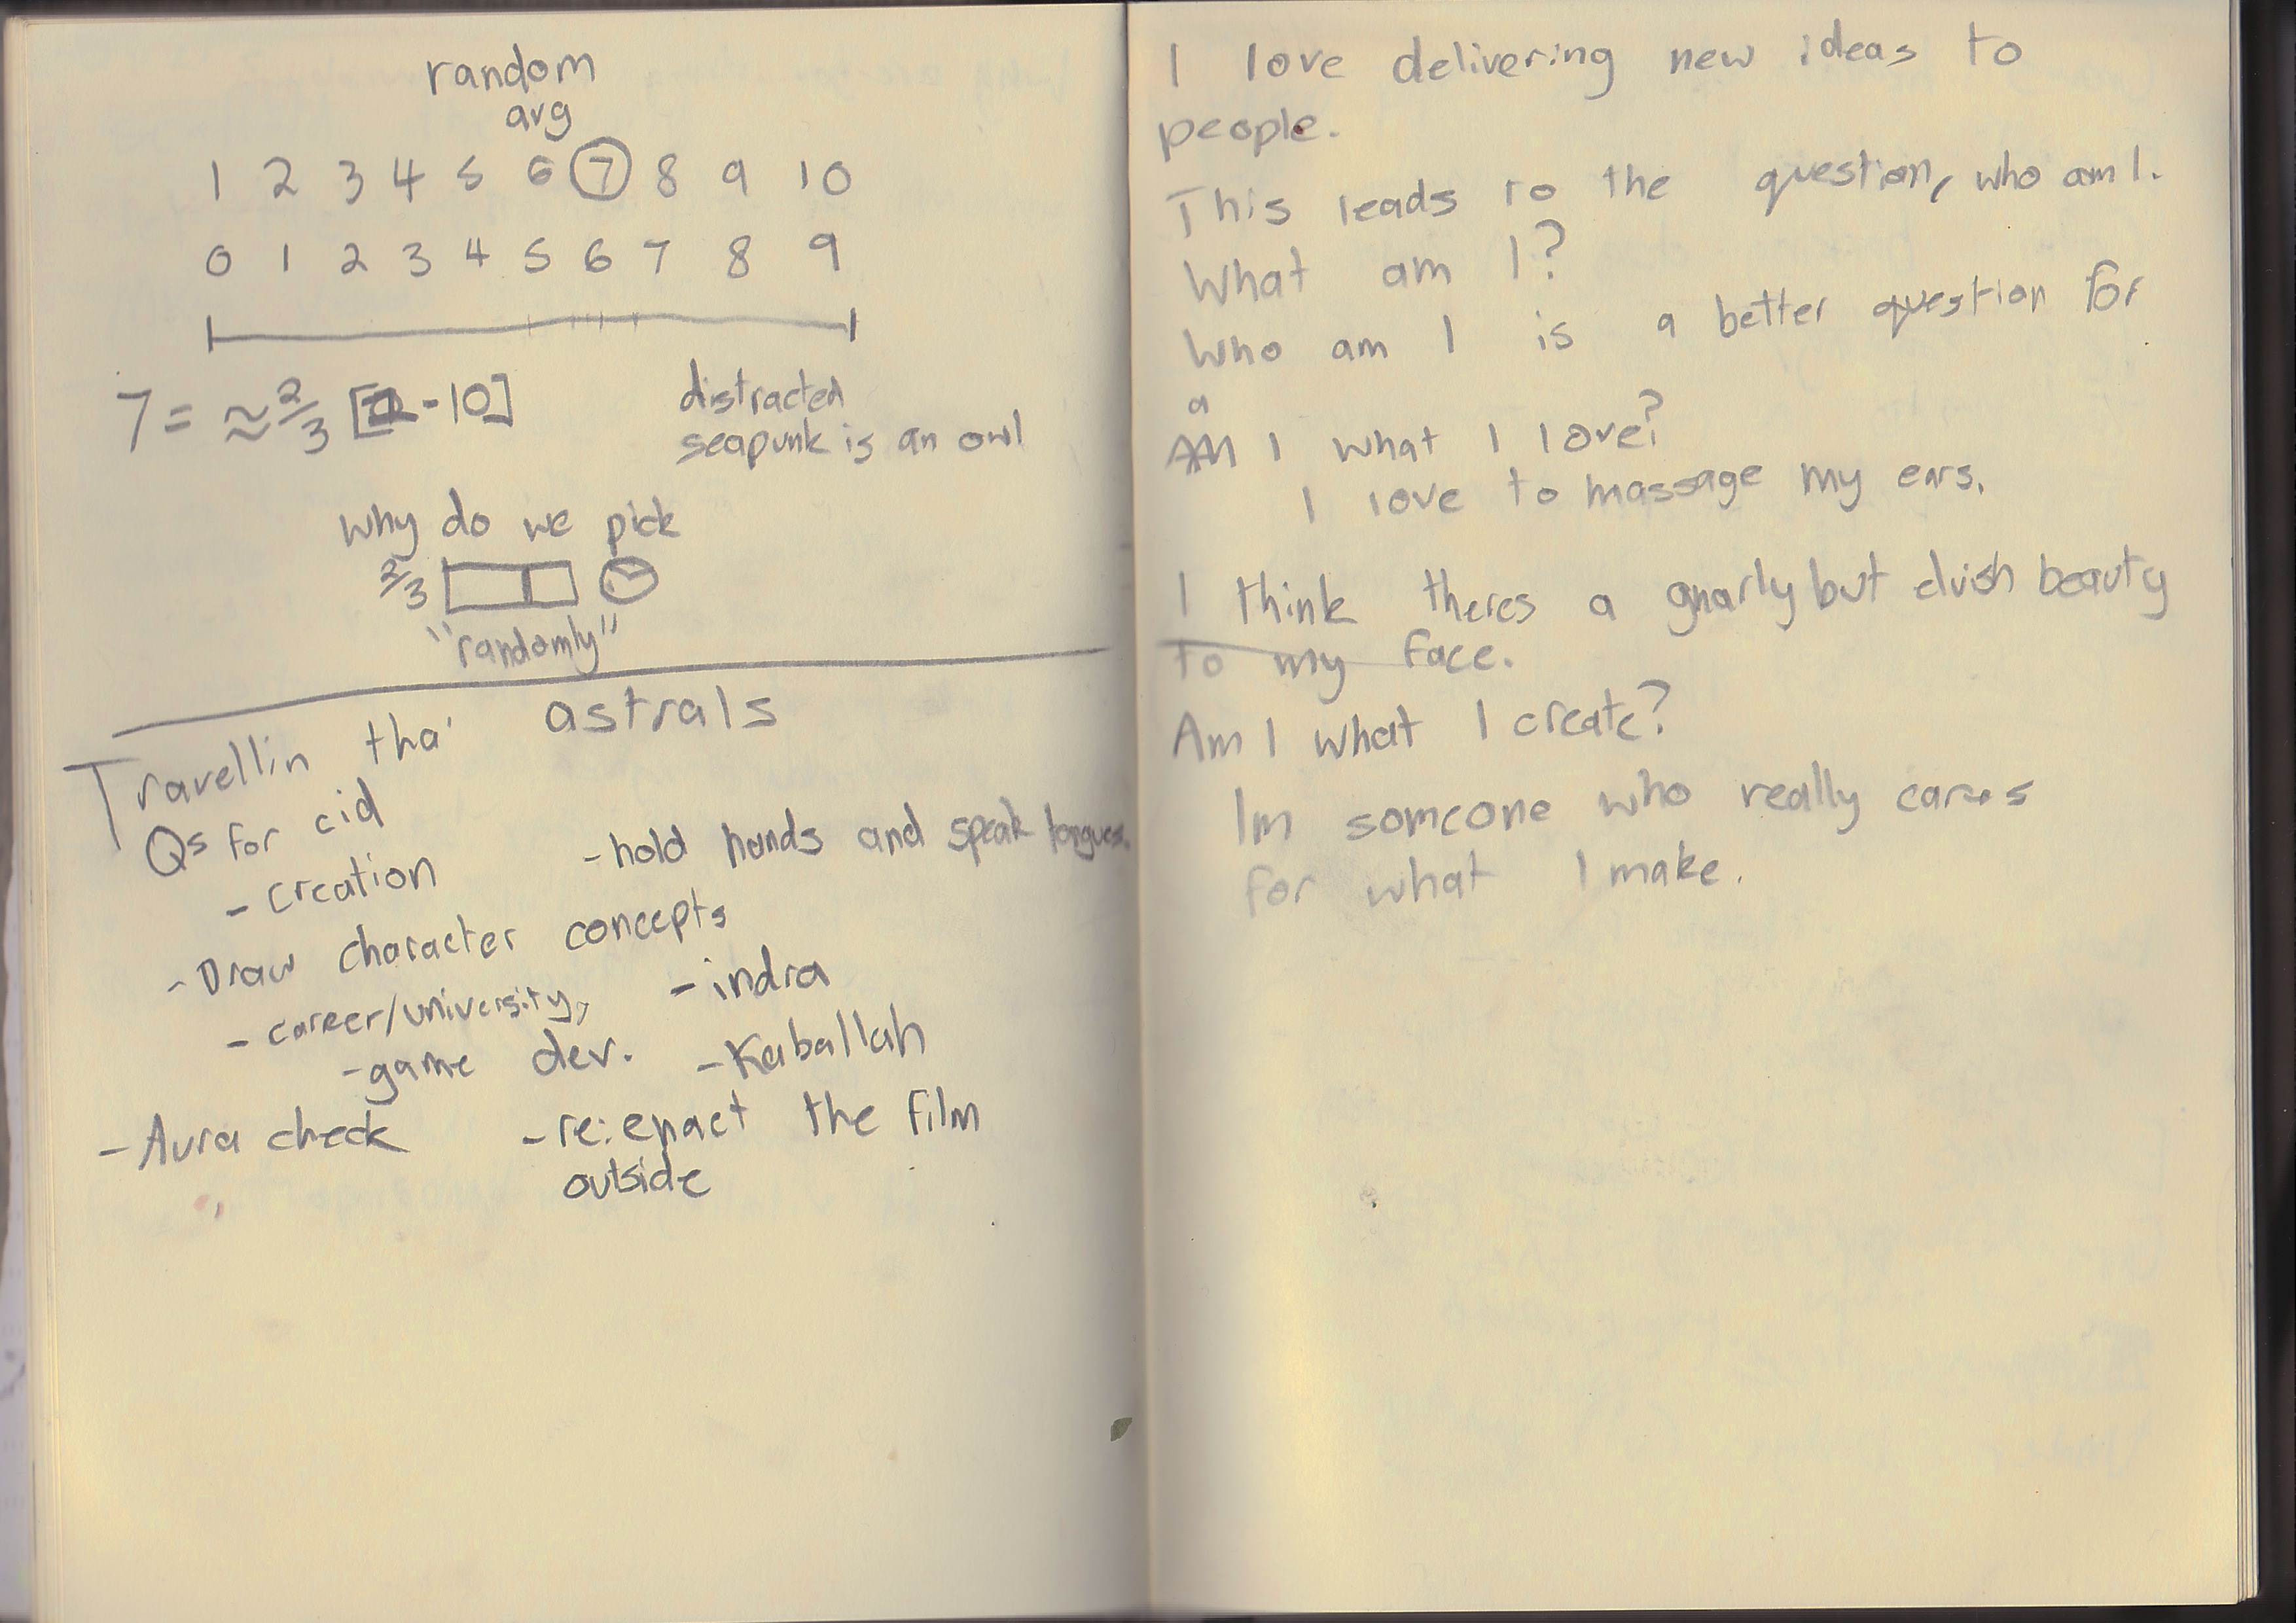 random
avg
1 2 3 4 5 6 7 8 9 10
0 1 2 3 4 5 6 7 8 9
7 = ≈ 2/3 [ -10]
distracted
seapunk is an owl
Why do we pick
2/3
"randomly"
Travellin tha' astrals
Qs for cid
- creation
- hold hands and speak tongues.
- Draw character concepts
- career/university,
- indra
- game dev.
- Kaballah
- Aura check
- re:enact the film
outside
I love delivering new ideas to
people.
This leads to the question, who am I.
What am I?
Who am I is a better question for
a
Am I what I love?
I love to massage my ears.
I think theres a gnarly but elvish beauty
to my face.
Am I what I create?
Im someone who really cares
for what I make.